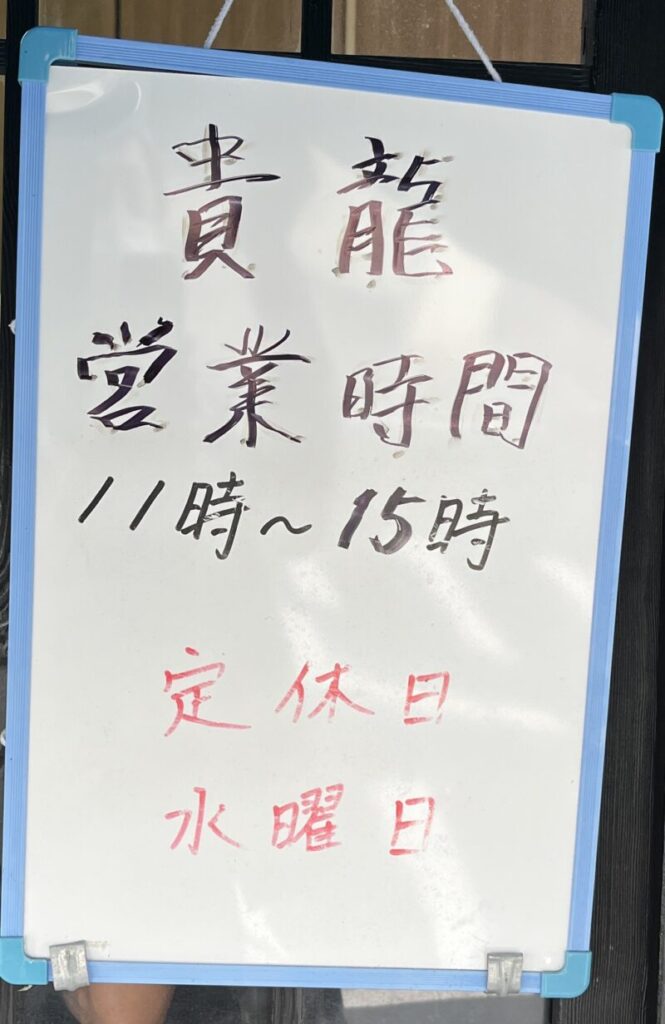 貴龍
営業時間
11時～15時
定休日
水曜日